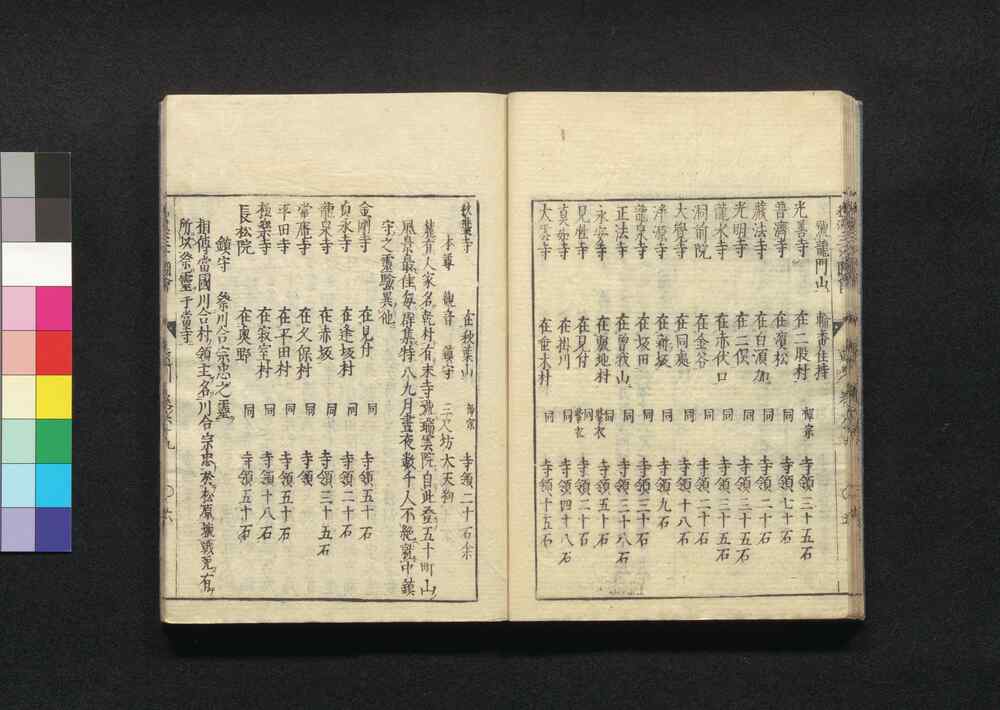 號龍門山 輪番住持
光善寺 在二股村 禪宗 寺領三十五石
普濟寺 在濱松 同 寺領七十石
藏法寺 在白須加 同 寺領二十石
光明寺 在二俣 同 寺領三十五石
龍水寺 在赤伏口 同 寺領三十五石
洞前院 在金谷 同 寺領二十石
大學寺 在同奥 同 寺領十八石
淨源寺 在新坂 同 寺領九石
龍泉寺 在坂田 同 寺領三十石
正法寺 在曽我山 同 寺領三十八石
永安寺 在敷地村 同 紫衣 寺領五十石
見性寺 在見付 同 紫衣 寺領二十石
真如寺 在掛川 同 寺領四十八石
大雲寺 在垂木村 同 寺領十五石
秋葉寺 在秋葉山 禪宗 寺領二十石余
本尊 觀音 鎮守 三尺坊大天狗
麓有人家名乾村有末寺號瑞雲院自此登五十町山
風景最佳毎群集特八九月晝夜數千人不絶就中鎮
守之靈驗異他
金剛寺 在見付 同 寺領五十石
貞永寺 在逢坂村 同 寺領二十石
龍泉寺 在赤坂 同 寺領三十五石
常唐寺 在久保村 同 寺領
平田寺 在平田村 同 寺領五十石
極樂寺 在寂室村 同 寺領十八石
長松院 在奥野 同 寺領五十石
鎮守 祭川合宗忠之靈
相傳當國川合村領主名川合宗忠於松原城戰死有
所以祭靈于當寺